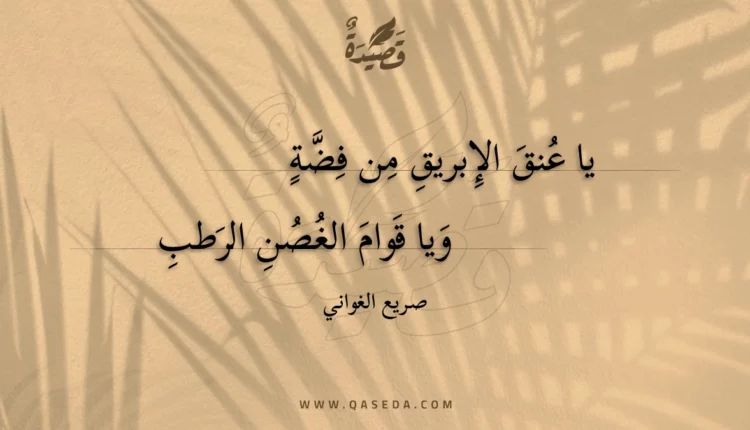 قَصِيْدَةٌ
يا عُنقَ الإِبريقِ مِن فِضَّةٍ
وَيا قَوامَ الغُصُنِ الرَطبِ
صريع الغواني
WWW.QASEDA.COM